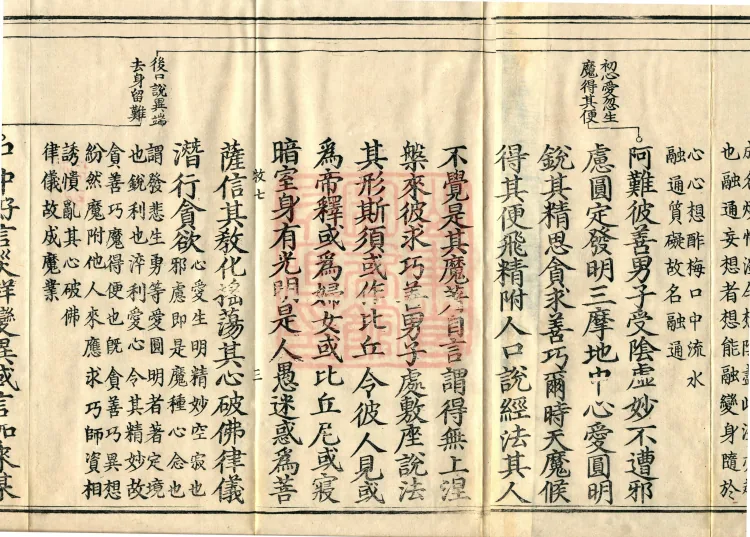 也融通妄想者想能融變身隨於
心心想酢梅口中流水
融通質礙故名融通
初心愛忽生
魔得其便
阿難彼善男子受陰虛妙不遭邪
慮圓定發明三摩地中心愛圓明
銳其精思貪求善巧爾時天魔候
得其便飛精附人口說經法其人
不覺是其魔著自言謂得無上涅
槃來彼求巧善男子處敷座說法
其形斯須或作比丘令彼人見或
爲帝釋或爲婦女或比丘尼或寢
暗室身有光明是人愚迷惑爲菩
七 三
薩信其教化搖蕩其心破佛律儀
潛行貪欲
心愛生明精妙空寂也
邪慮即是魔種心念也
後口說異端
去身留難
謂發悲生勇等愛圓明者著定境
也銳利也淬利愛心令其精妙故
貪善巧魔得便也旣貪善巧異想
紛然魔附他人來應求巧師資相
誘憒亂其心破佛
律儀故成魔業
口中好言災祥變異或言如來某